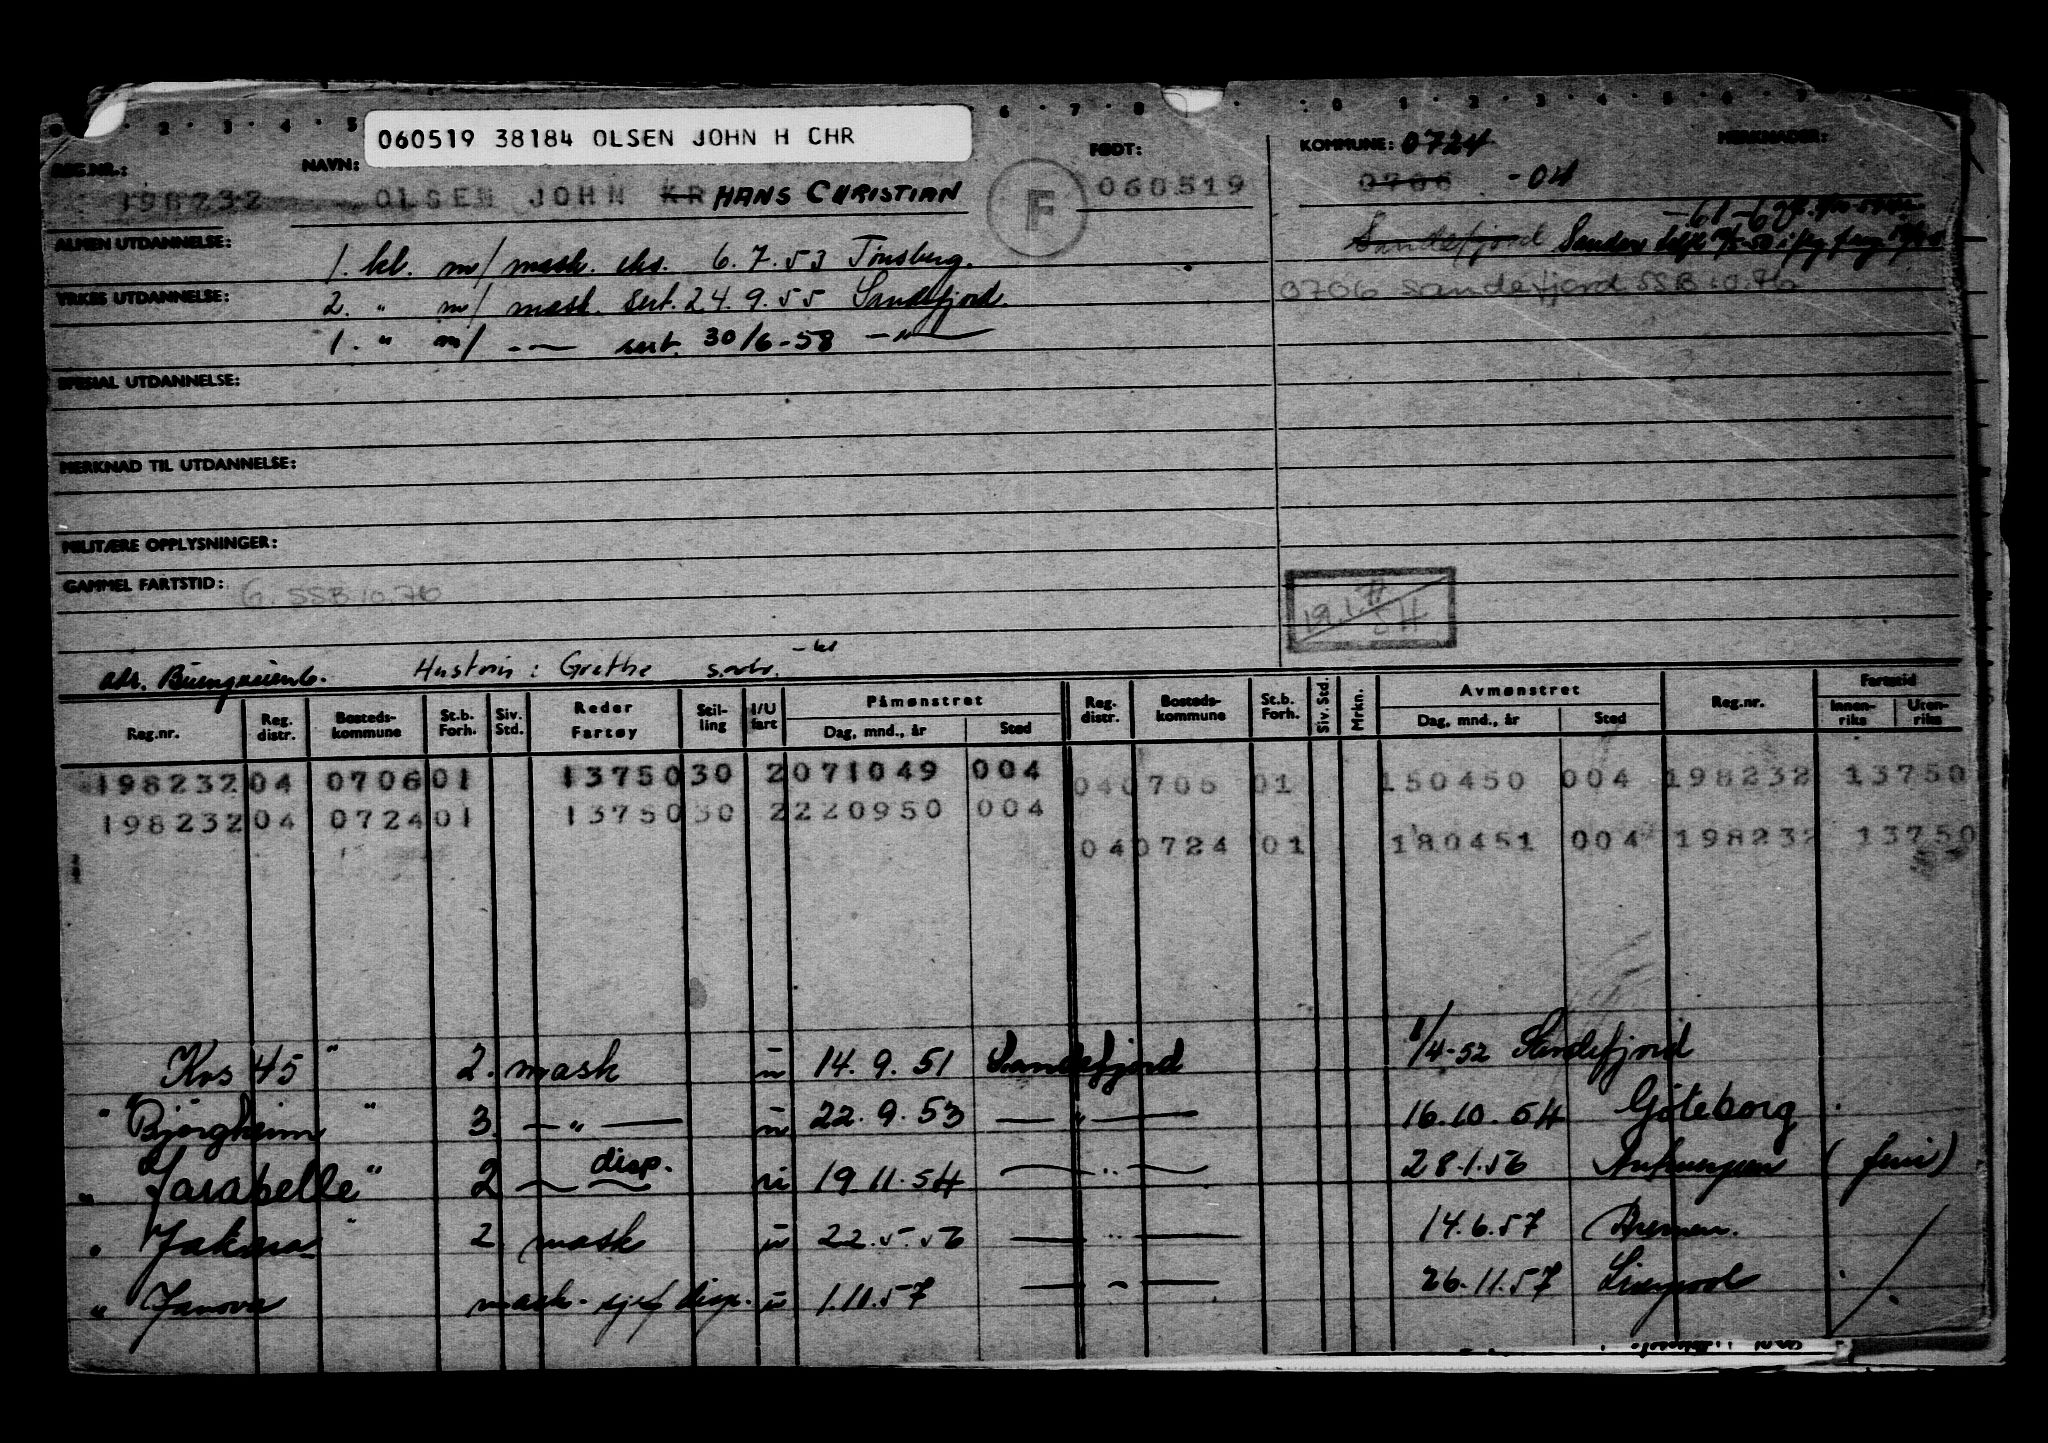 060519 38184 OLSEN JOHN H CHR
REG.NR.: NAVN: FØDT: KOMMUNE: 0724 MERKNADER:
198232 OLSEN JOHN KR HANS CHRISTIAN F 060519 0706 -04
ALMEN UTDANNELSE: 1. kl. m/ mask. eks. 6.7.53 Tønsberg. Sandefjord
YRKES UTDANNELSE: 2. " m/ mask. sert. 24.9.55 Sandefjord. 0706 Sandefjord SSB 10.76
1. " m/ -"- sert. 30/6-58 -"-
SPESIAL UTDANNELSE:
MERKNAD TIL UTDANNELSE:
MILITÆRE OPPLYSNINGER:
GAMMEL FARTSTID: G. SSB 10.76
adr. Hustru: Grethe
Reg.nr. Reg. distr. Bosteds-kommune St.b. Forh. Siv. Std. Reder Fartøy Stil-ling I/U fart Påmønstret Dag, mnd., år Sted Reg. distr. Bosteds-kommune St.b. Forh. Siv. Std. Mrkn. Avmønstret Dag, mnd., år Sted Reg.nr. Fartstid Innen-riks Uten-riks
198232 04 0706 01 13750 30 2 071049 004 04 0706 01 150450 004 198232 13750
198232 04 0724 01 13750 30 2 220950 004
04 0724 01 180451 004 198232 13750
Kos 45 " 2. mask u 14.9.51 Sandefjord 1/4-52 Sandefjord
" "Bjørgheim " 3. -"- u 22.9.53 -"- 16.10.54 Göteborg
" Jarabelle " 2 -"- disp. u 19.11.54 -"- 28.1.56 Antwerpen (ferie)
" Jakara " 2. mask u 22.5.56 -"- 14.6.57 Bremen.
" Janova mask.sjef disp. u 1.11.57 -"- 26.11.57 Liverpool